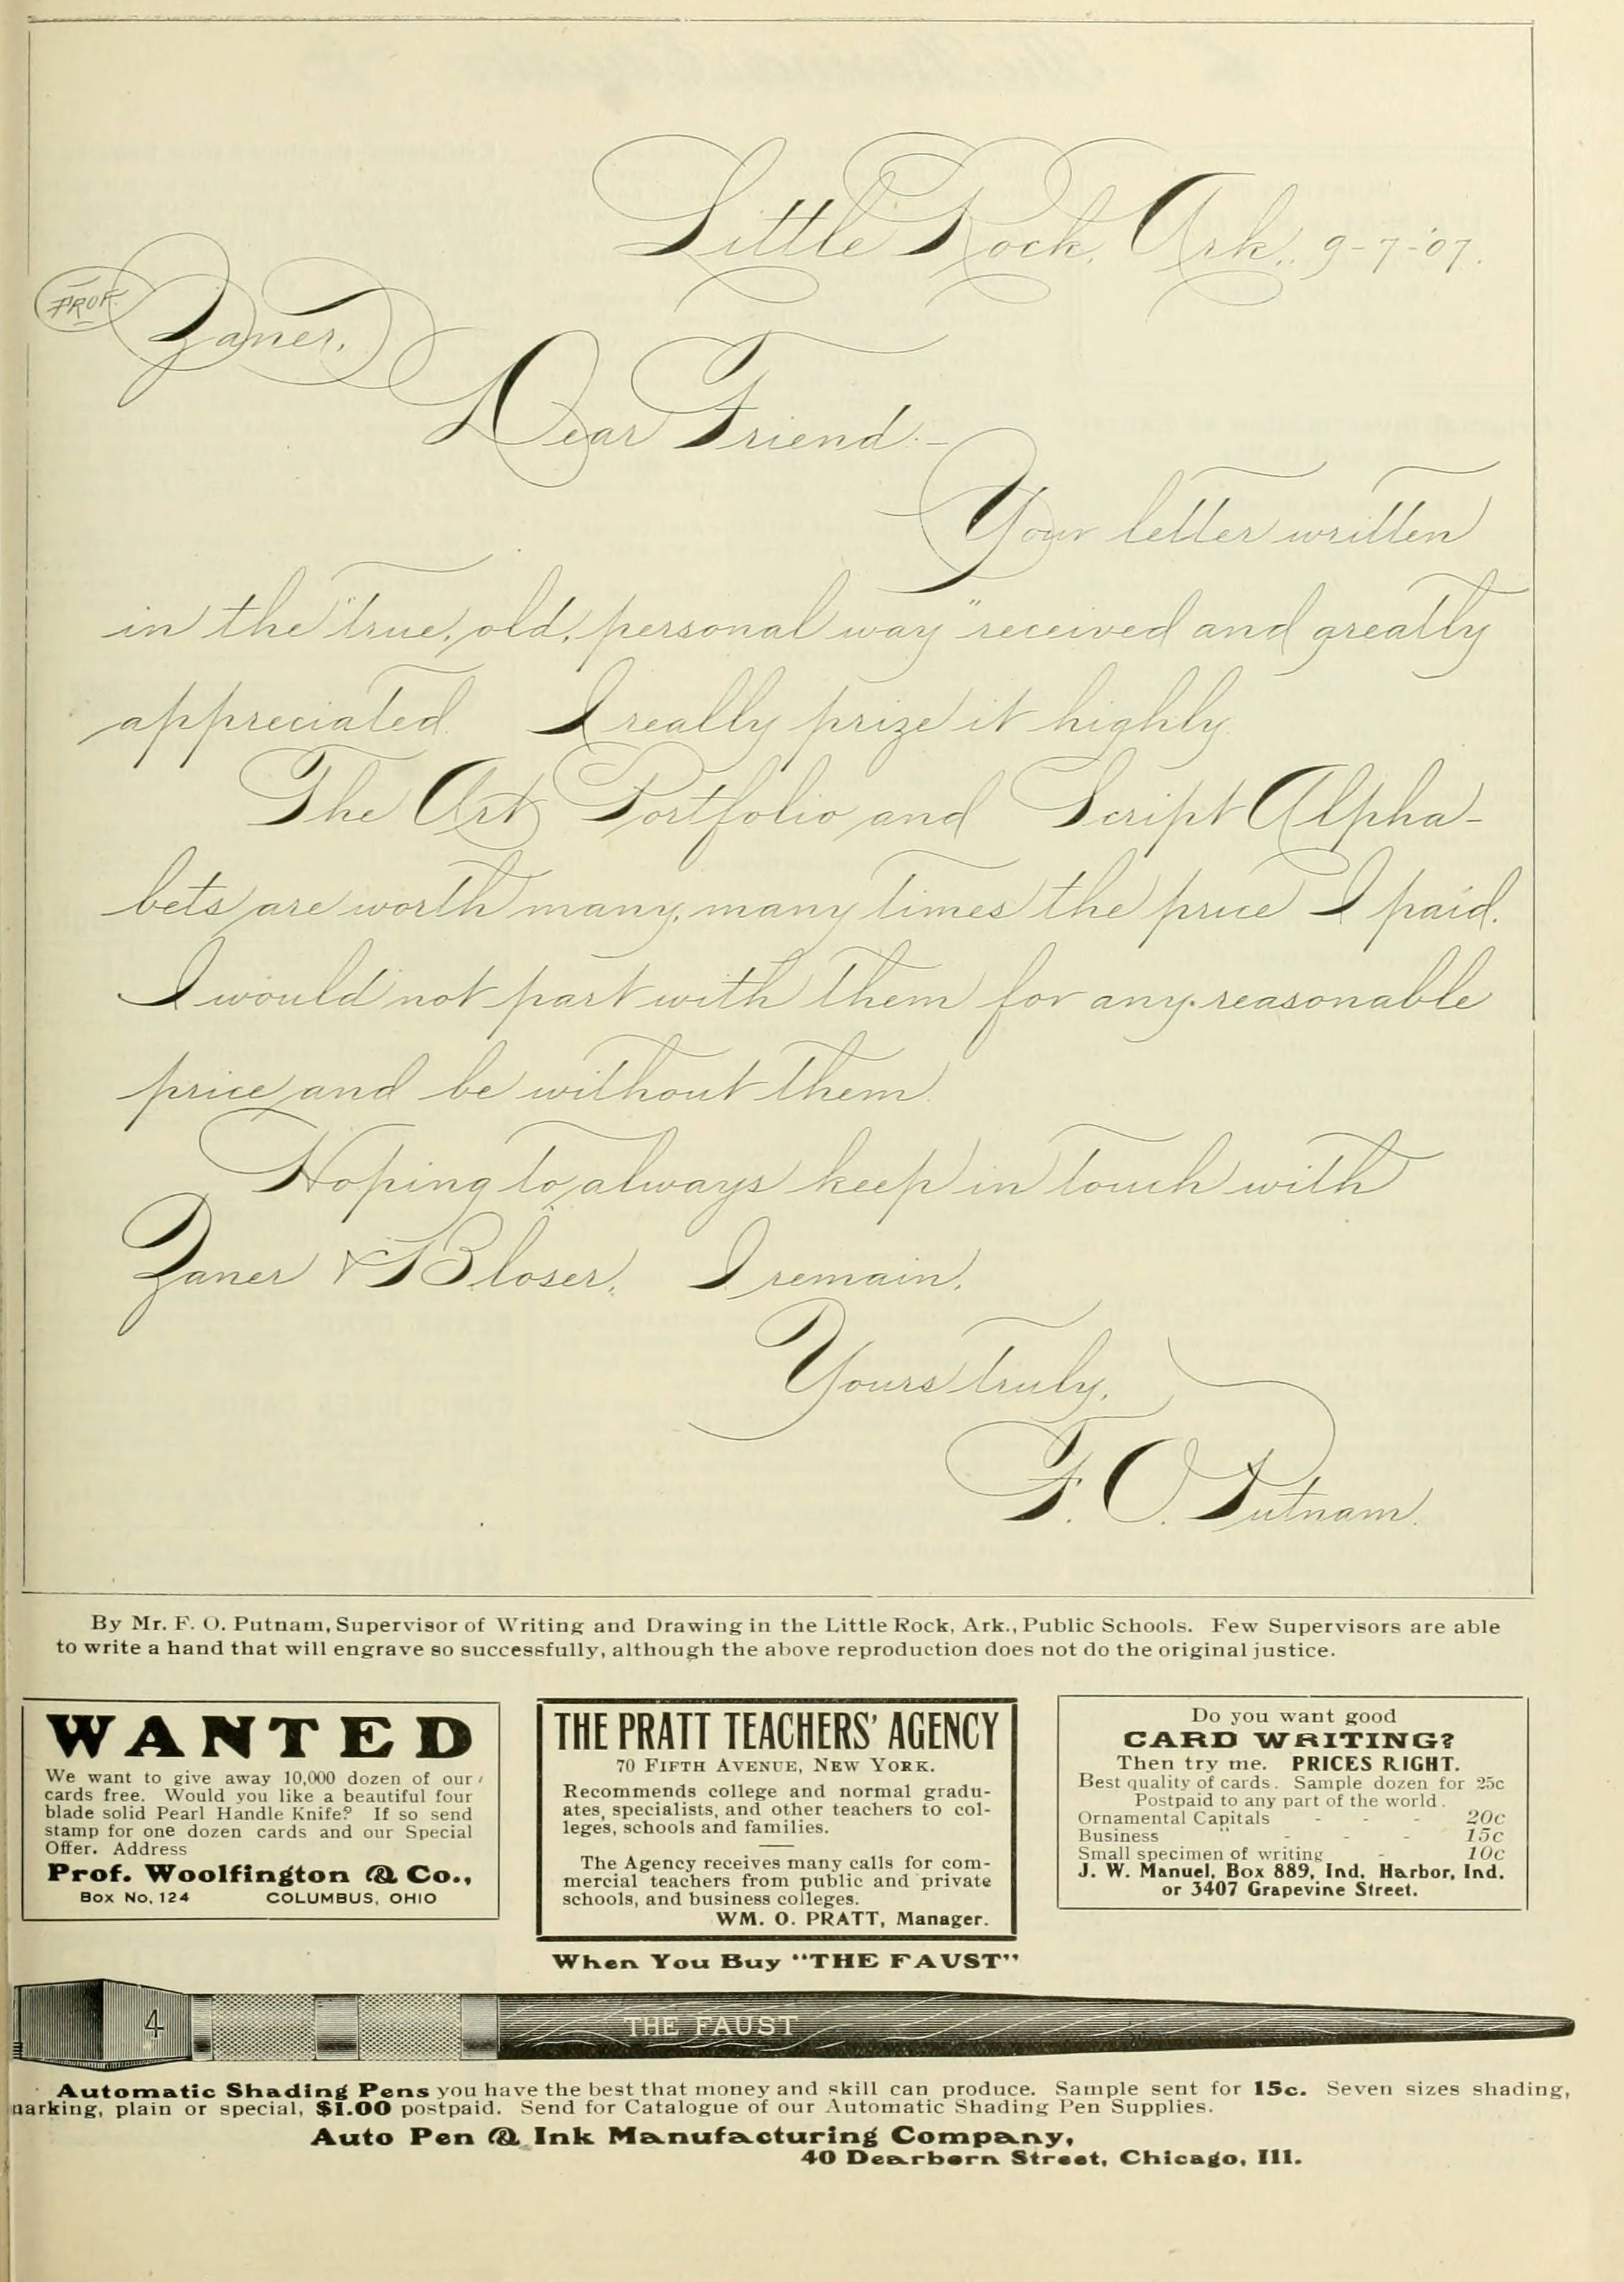 Little Rock, Ark., 9-7-'07.
PROF.
Zaner,
Dear Friend:-
Your letter written
in the "true, old, personal way" received and greatly
appreciated. I really prize it highly.
The Art Portfolio and Script Alpha-
bets are worth many, many times the price I paid.
I would not part with them for any reasonable
price and be without them.
Hoping to always keep in touch with
Zaner & Bloser, I remain,
Yours truly,
F. O. Putnam.
By Mr. F. O. Putnam, Supervisor of Writing and Drawing in the Little Rock, Ark., Public Schools. Few Supervisors are able
to write a hand that will engrave so successfully, although the above reproduction does not do the original justice.
WANTED
We want to give away 10,000 dozen of our
cards free. Would you like a beautiful four
blade solid Pearl Handle Knife? If so send
stamp for one dozen cards and our Special
Offer. Address
Prof. Woolfington & Co.,
Box No, 124 COLUMBUS, OHIO
THE PRATT TEACHERS' AGENCY
70 FIFTH AVENUE, NEW YORK.
Recommends college and normal gradu-
ates, specialists, and other teachers to col-
leges, schools and families.
The Agency receives many calls for com-
mercial teachers from public and private
schools, and business colleges.
WM. O. PRATT, Manager.
Do you want good
CARD WRITING?
Then try me. PRICES RIGHT.
Best quality of cards. Sample dozen for 25c
Postpaid to any part of the world.
Ornamental Capitals - - - 20c
Business " - - - 15c
Small specimen of writing - 10c
J. W. Manuel, Box 889, Ind. Harbor, Ind.
or 3407 Grapevine Street.
When You Buy "THE FAUST"
4 THE FAUST
Automatic Shading Pens you have the best that money and skill can produce. Sample sent for 15c. Seven sizes shading,
marking, plain or special, $1.00 postpaid. Send for Catalogue of our Automatic Shading Pen Supplies.
Auto Pen & Ink Manufacturing Company,
40 Dearborn Street, Chicago, Ill.